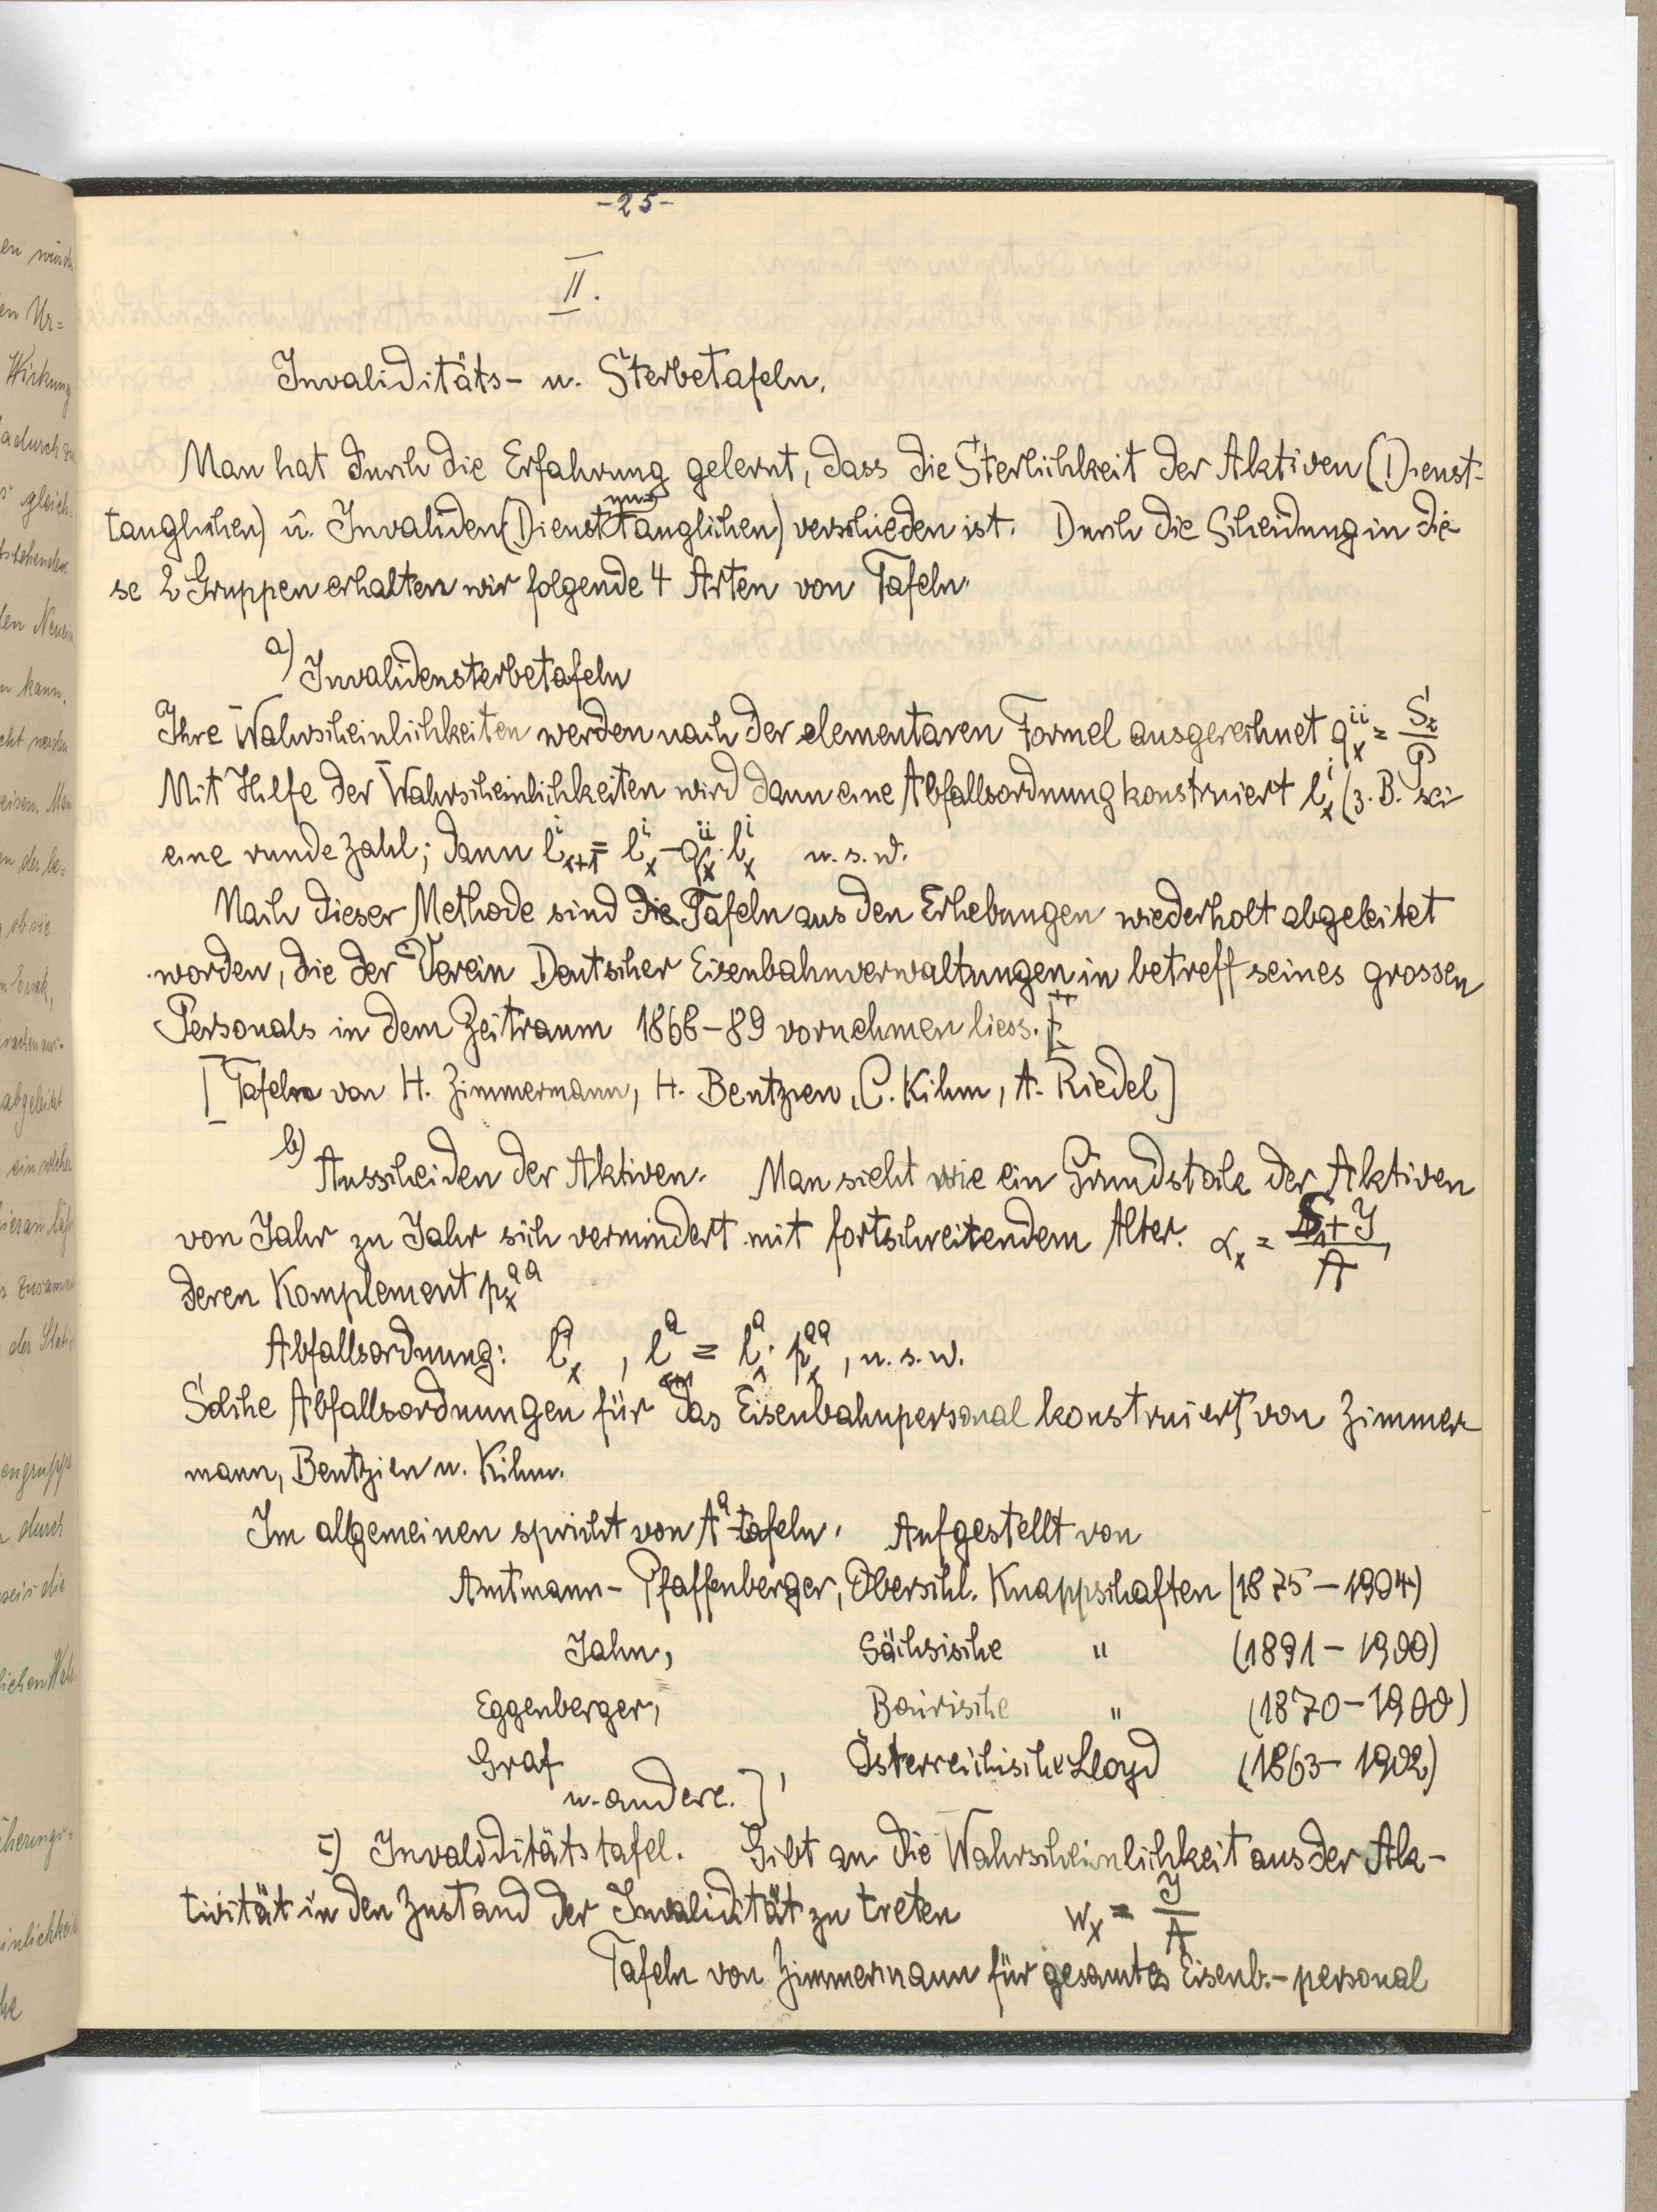 -25-
II.
Invaliditäts- u. Sterbetafeln.
Man hat durch die Erfahrung gelernt, dass die Sterblichkeit der Aktiven (Dienst-
tauglichen) u. Invaliden (Dienstuntauglichen) verschieden ist. Durch die Scheidung in die
se 2 Gruppen erhalten wir folgende 4 Arten von Tafeln.
a) Invalidensterbetafeln
Ihre Wahrscheinlichkeiten werden nach der elementaren Formel ausgerechnet qₓⁱⁱ =
Mit Hilfe der Wahrscheinlichkeiten wird dann eine Abfallsordnung konstruiert lₓⁱ (z. B. sei
eine runde Zahl; dann lₓ₊₁ⁱ = lₓⁱ - qₓⁱⁱ · lₓⁱ u. s. w.
Nach dieser Methode sind die Tafeln aus den Erhebungen wiederholt abgeleitet
worden, die der Verein Deutscher Eisenbahnverwaltungen in betreff seines grossen
Personals in dem Zeitraum 1868-89 vornehmen liess.
[Tafeln von H. Zimmermann, H. Bentzien, C. Kihm, A. Riedel]
b) Ausscheiden der Aktiven. Man sieht wie ein Grundstock der Aktiven
von Jahr zu Jahr sich vermindert mit fortschreitendem Alter. αₓ = (S₁+J)/A,
deren Komplement pₓᵃᵃ
Abfallsordnung: lₓᵃ, lₓ₊₁ᵃ = lₓᵃ · pₓᵃᵃ, u. s. w.
Solche Abfallsordnungen für das Eisenbahnpersonal konstruiert von Zimmer
mann, Bentzien u. Kihm.
Im allgemeinen spricht von Aᵃ-tafeln. Aufgestellt von
Amtmann-Pfaffenberger, Oberschl. Knappschaften (1875-1904)
Jahn, Sächsische " (1891-1900)
Eggenberger, Bairische " (1870-1900)
Graf, Österreichische Lloyd (1863-1902)
u. andere.]
c) Invaliditätstafel. Gibt an die Wahrscheinlichkeit aus der Ak-
tivität in den Zustand der Invalidität zu treten wₓ = J/A
Tafeln von Zimmermann für gesamtes Eisenb.-personal